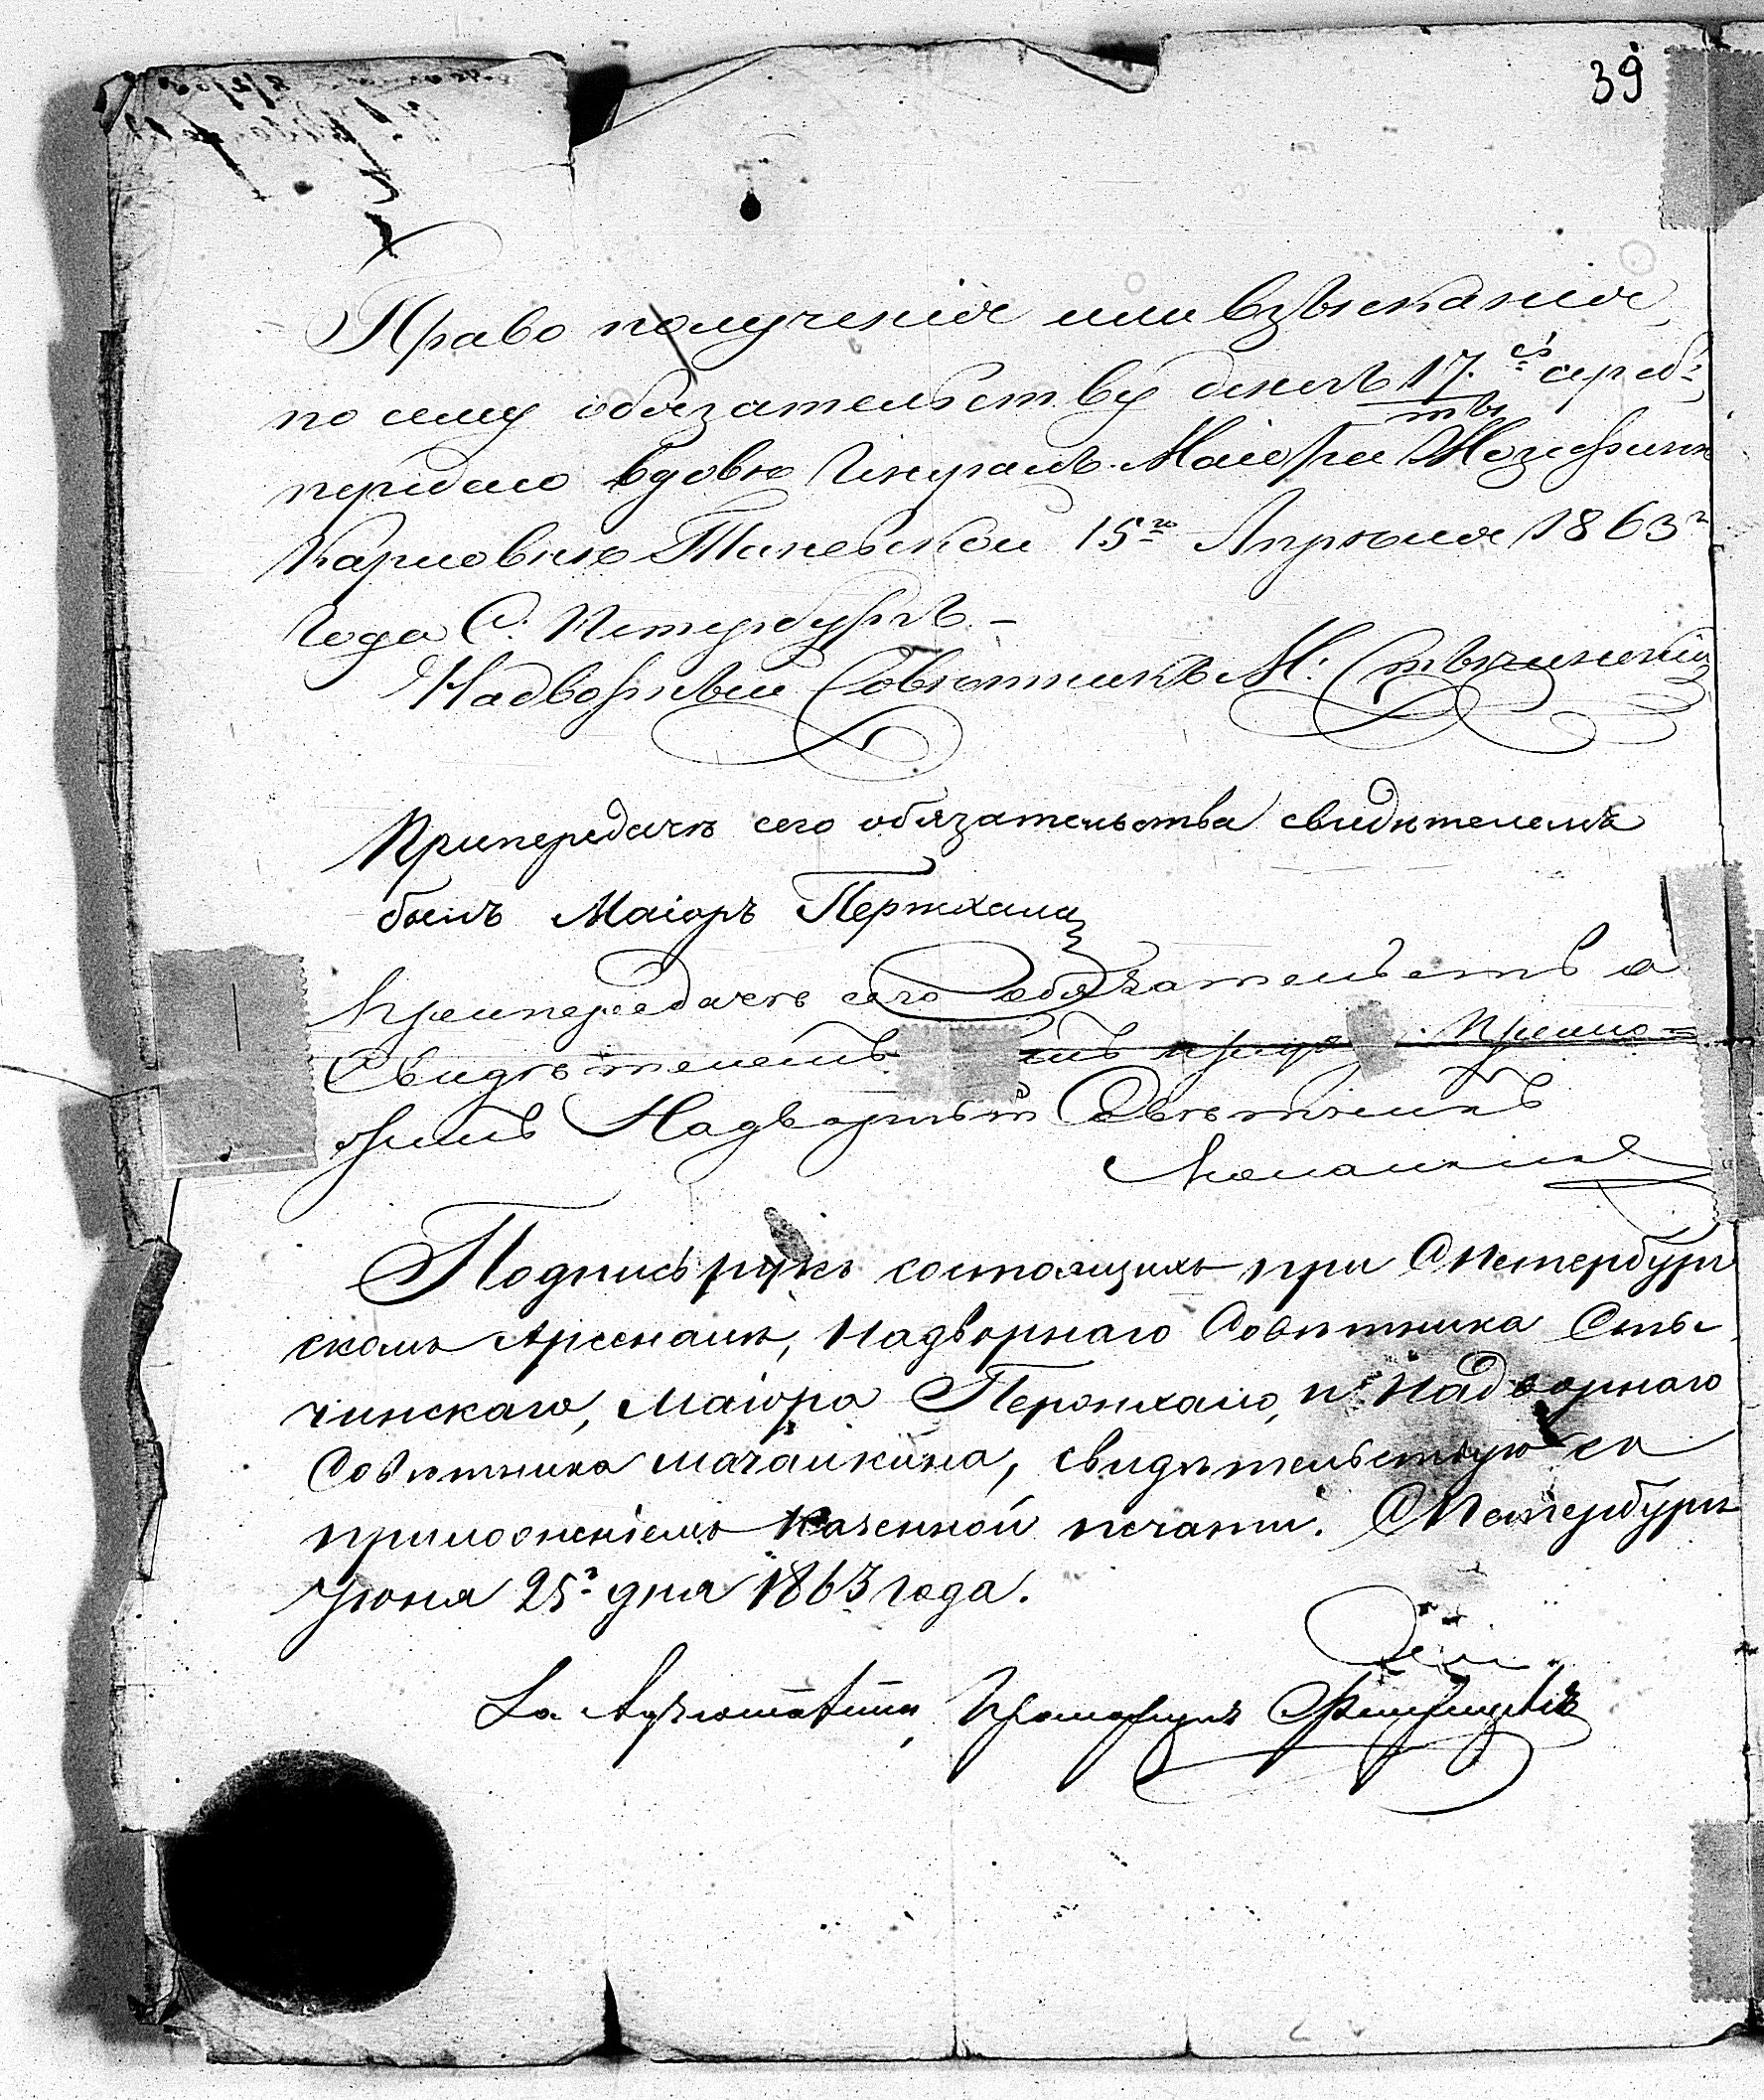 39
Право полученія или взысканія
по сему обязательству денегъ 17. т. сереб.
передаю вдовѣ Генералъ-Маіора Жозефинѣ
Карловнѣ Таневской 15го Апрѣля 1863г
года С. Петербургъ. –
Надворный Совѣтникъ М. Стычинскій
При передачѣ сего обязательства свидѣтелемъ
былъ Маіоръ
При передаче сего обязательства
Свидѣтелемъ
Надворный Совѣтникъ
Подпись рукъ состоящихъ при СПетербург
скомъ Арсеналѣ, Надворнаго Совѣтника Сты-
чинскаго, Маіора и Надворнаго
Совѣтника свидѣтельствую съ
приложеніемъ казенной печати. СПетербургъ
Іюня 25го дня 1863 года.
За Адъютанта, Прапорщикъ